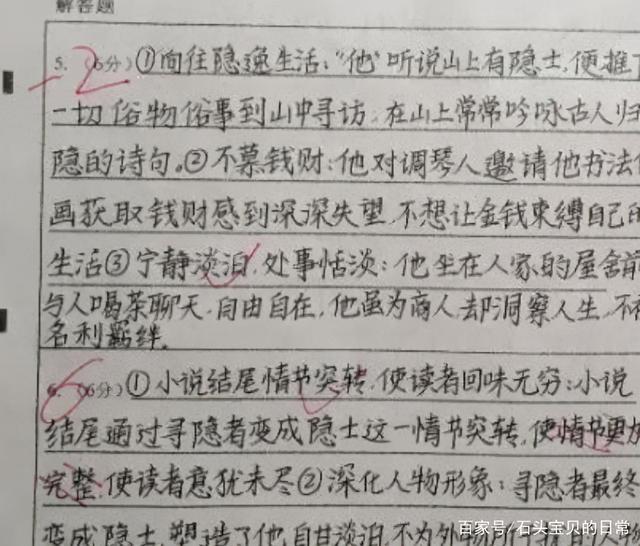 解答题
5. (6分) ①向往隐逸生活:"他"听说山上有隐士,便推
一切俗物俗事到山中寻访;在山上常常吟咏古人归
隐的诗句。②不慕钱财:他对调琴人邀请他书法
画获取钱财感到深深失望,不想让金钱束缚自己的
生活③宁静淡泊,处事恬淡:他坐在人家的屋舍前
与人喝茶聊天,自由自在,他虽为商人,却洞察人生,不
名利羁绊.
-2
6. (6分) ①小说结尾情节突转,使读者回味无穷:小说
结尾通过寻隐者变成隐士这一情节突转,使情节更加
完整,使读者意犹未尽②深化人物形象:寻隐者最终
变成隐士,塑造了他自甘淡泊,不为外物所
6
百家号/石头宝贝的日常